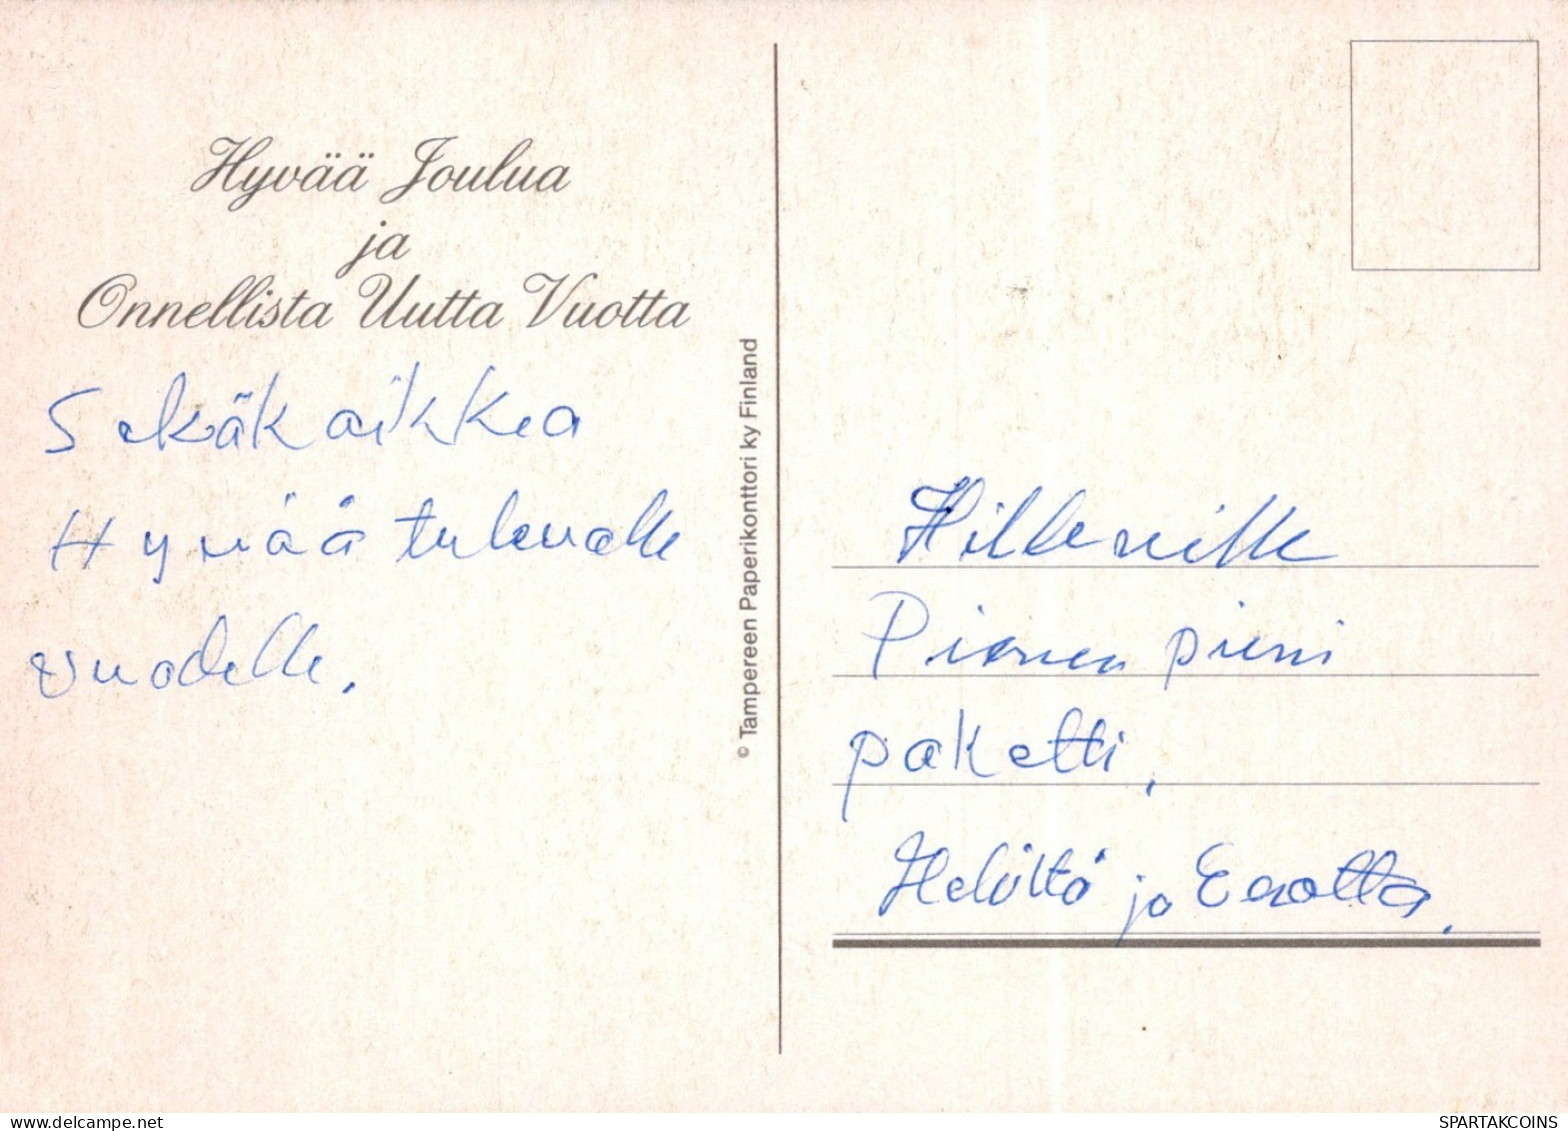 Hyvää Joulua
ja
Onnellista Uutta Vuotta
Sekäk aikkea
Hyvää tulevalle
vuodelle.
© Tampereen Paperikonttori ky Finland
Hilleville
pieni
paketti.
ja Eerolta.
SPARTAKCOINS